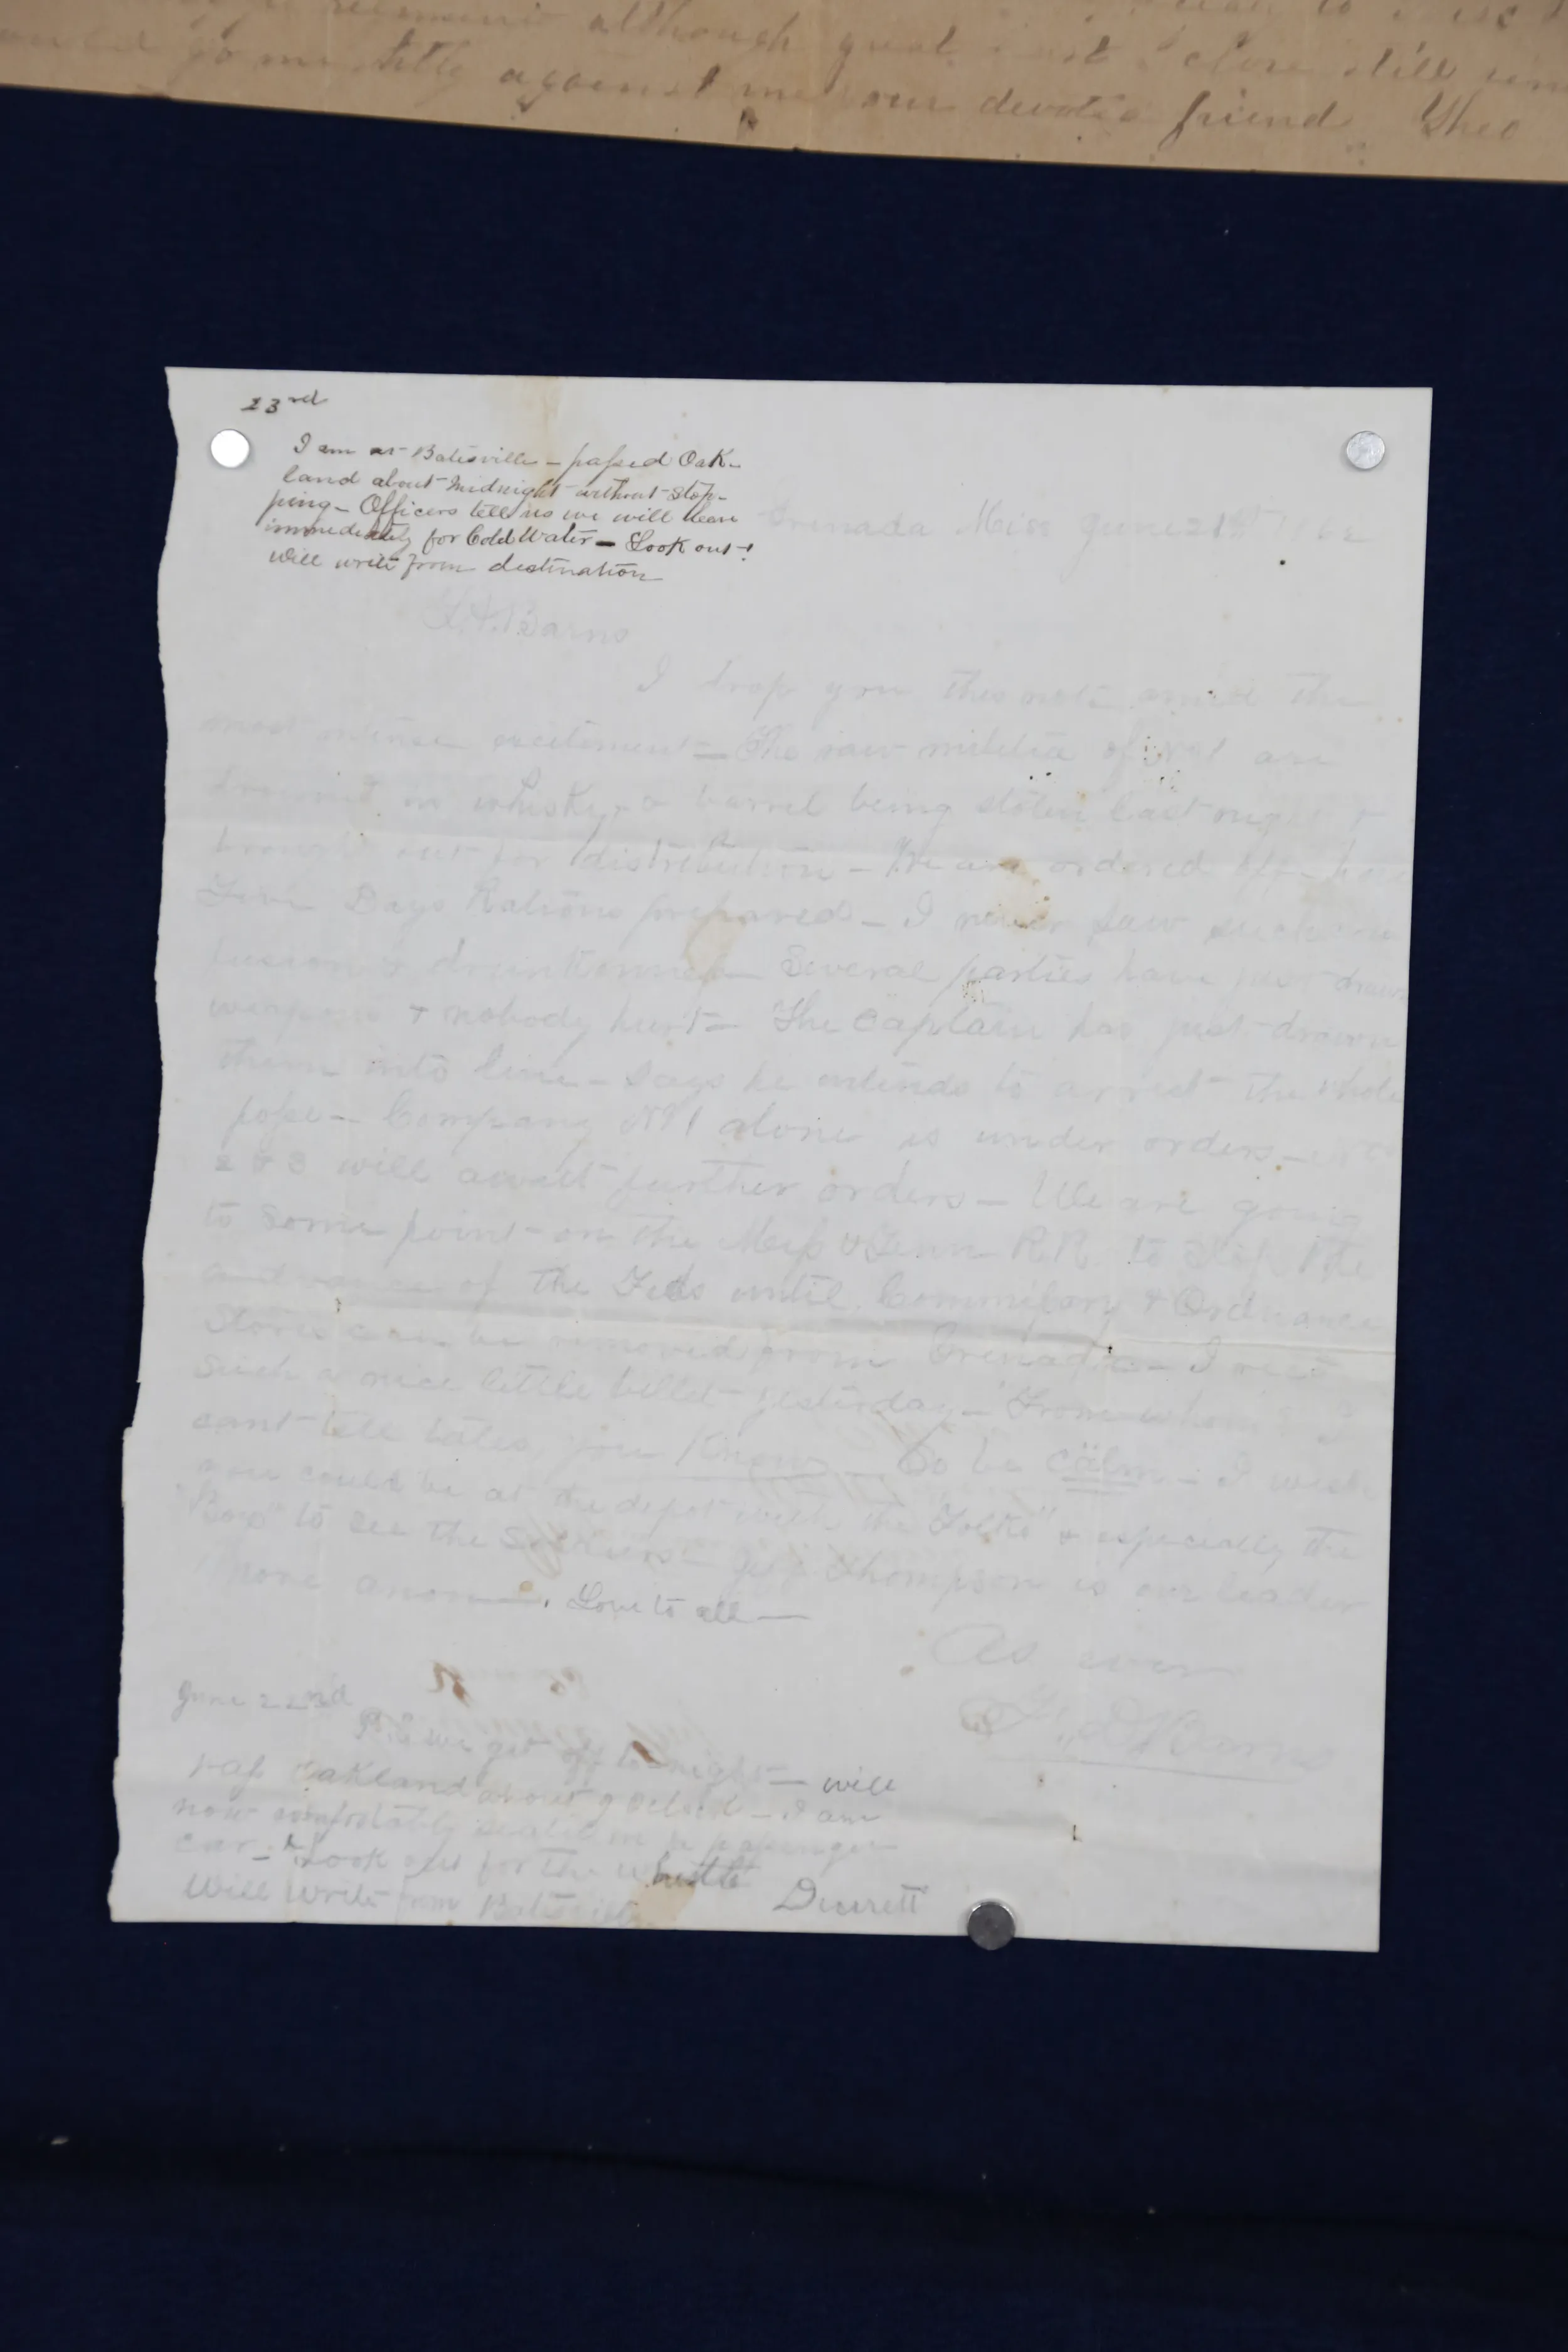 although
against me your devoted friend Theo
23rd
I am at Batesville - passed Oak-
land about midnight without stop-
ping - Officers tell us we will leave
immediately for Cold Water - Look out!
Will write from destination
Grenada Miss June 21st 62
Barns
I drop you this note amid the
most intense excitement - The raw militia of No 1 are
drowned in whisky, a barrel being stolen last night &
brought out for distribution - We are ordered off - have
Days Rations prepared - I never saw such con
fusion & drunkenness - Several parties have just drawn
weapons & nobody hurt - The Captain has just drawn
them into line - Says he intends to arrest the whole
posse - Company No 1 alone is under orders -
2 & 3 will await further orders - We are going
to some point on the Miss & Tenn R.R. to stop the
advance of the Feds until Commissary & Ordnance
Stores can be removed from Grenada - I
such a nice little billet yesterday - From whom I
cant tell tales, you Know - So be calm - I wish
you could be at the depot with the "Folks" & especially the
"Boys" to see the Jeff Thompson is our leader
More anon. Love to all -
As ever
June 22nd
P.S. we get off to-night - will
pass Oakland about 9 oclock - I am
now comfortably seated in a passenger
car - Look out for the whistle
Will write from Batesville